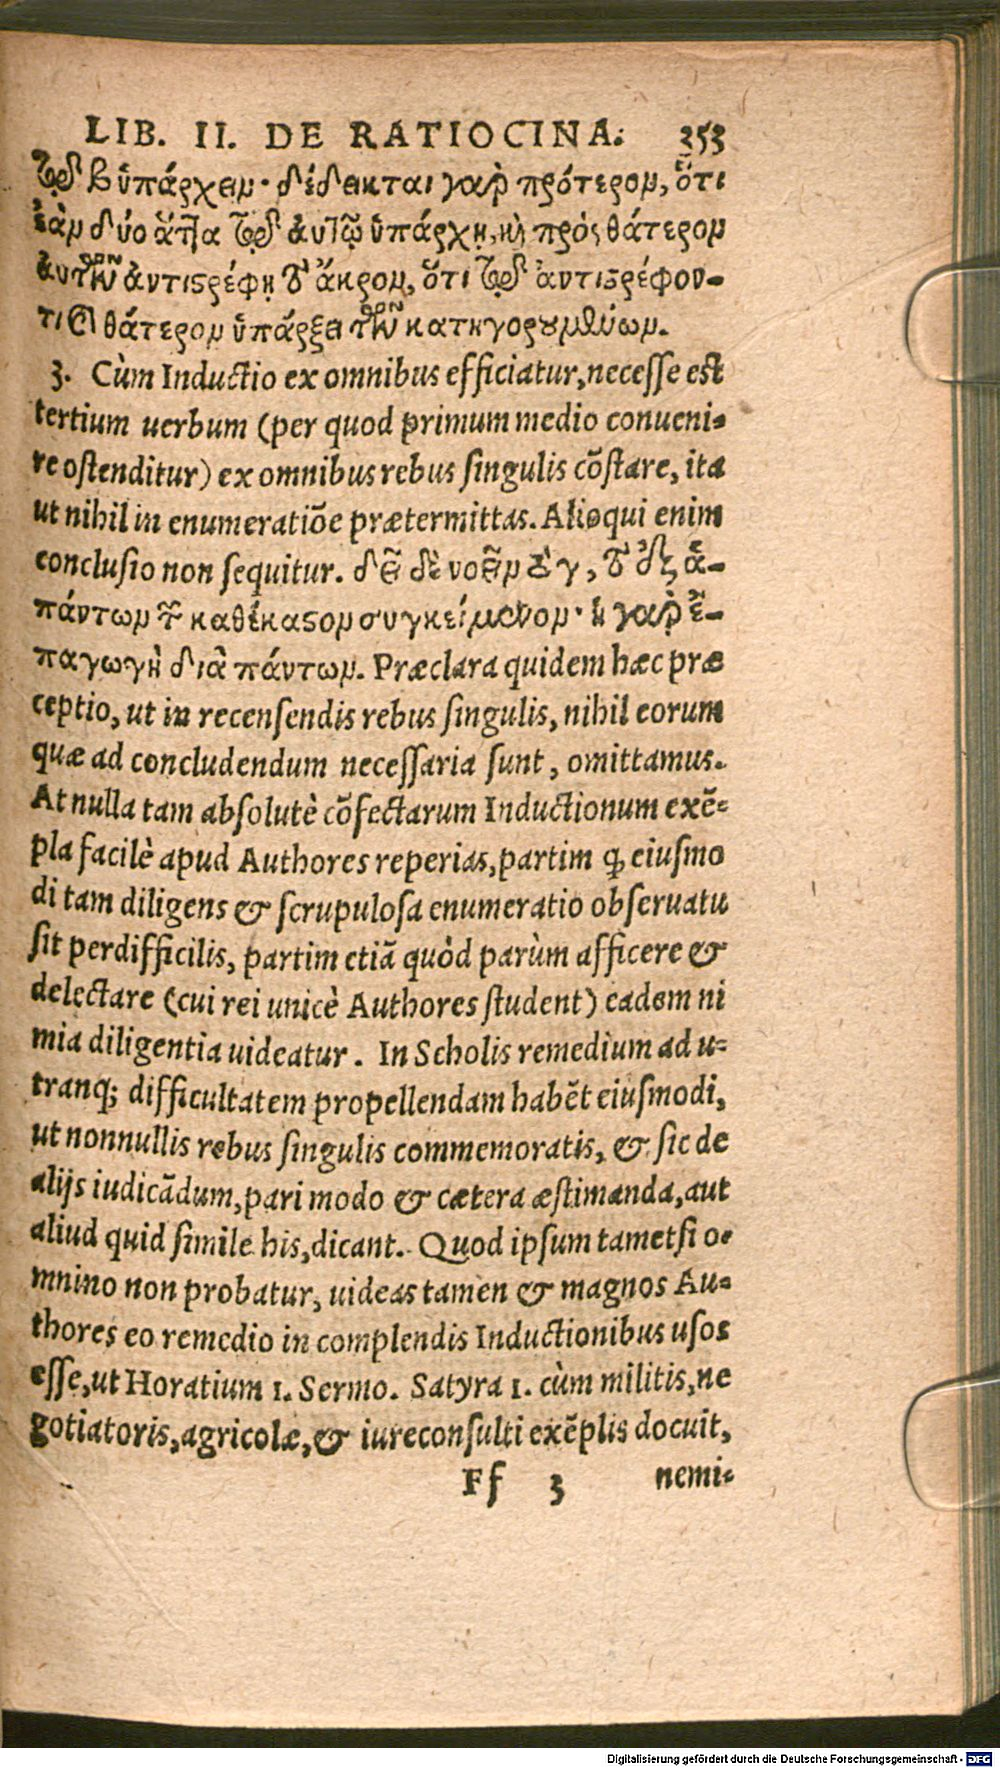 LIB. II. DE RATIOCINA. 253
τῷ β ὑπάρχειν· δέδεικται γὰρ πρότερον, ὅτι
ἐὰν δύο ἄττα τῷ αὐτῷ ὑπάρχῃ, καὶ πρὸς θάτερον
αὐτῶν ἀντιστρέφῃ τὸ ἄκρον, ὅτι τῷ ἀντιστρέφον-
τι καὶ θάτερον ὑπάρξει τῶν κατηγορουμένων.
3. Cùm Inductio ex omnibus efficiatur, necesse est
tertium uerbum (per quod primum medio conueni-
re ostenditur) ex omnibus rebus singulis cõstare, ita
ut nihil in enumeratiõe prætermittas. Alioqui enim
conclusio non sequitur. δεῖ δὲ νοεῖν τὸ γ, τὸ ἐξ ἁ-
πάντων τῶν καθέκαστον συγκείμενον· ἡ γὰρ ἐ-
παγωγὴ διὰ πάντων. Præclara quidem hæc præ
ceptio, ut in recensendis rebus singulis, nihil eorum
quæ ad concludendum necessaria sunt, omittamus.
At nulla tam absolutè cõfectarum Inductionum exẽ-
pla facilè apud Authores reperias, partim ꝙ eiusmo
di tam diligens & scrupulosa enumeratio obseruatu
sit perdifficilis, partim etiã quòd parùm afficere &
delectare (cui rei unicè Authores student) eadem ni
mia diligentia uideatur. In Scholis remedium ad u-
tranq; difficultatem propellendam habẽt eiusmodi,
ut nonnullis rebus singulis commemoratis, & sic de
alijs iudicãdum, pari modo & cætera æstimanda, aut
aliud quid simile his, dicant. Quod ipsum tametsi o-
mnino non probatur, uideas tamen & magnos Au-
thores eo remedio in complendis Inductionibus usos
esse, ut Horatium 1. Sermo. Satyra 1. cùm militis, ne
gotiatoris, agricolæ, & iureconsulti exẽplis docuit,
Ff 3 nemi-
Digitalisierung gefördert durch die Deutsche Forschungsgemeinschaft - DFG